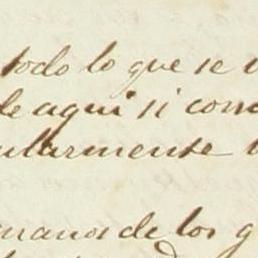 todo lo que se
de aqui si com
ularmente
manos de los q